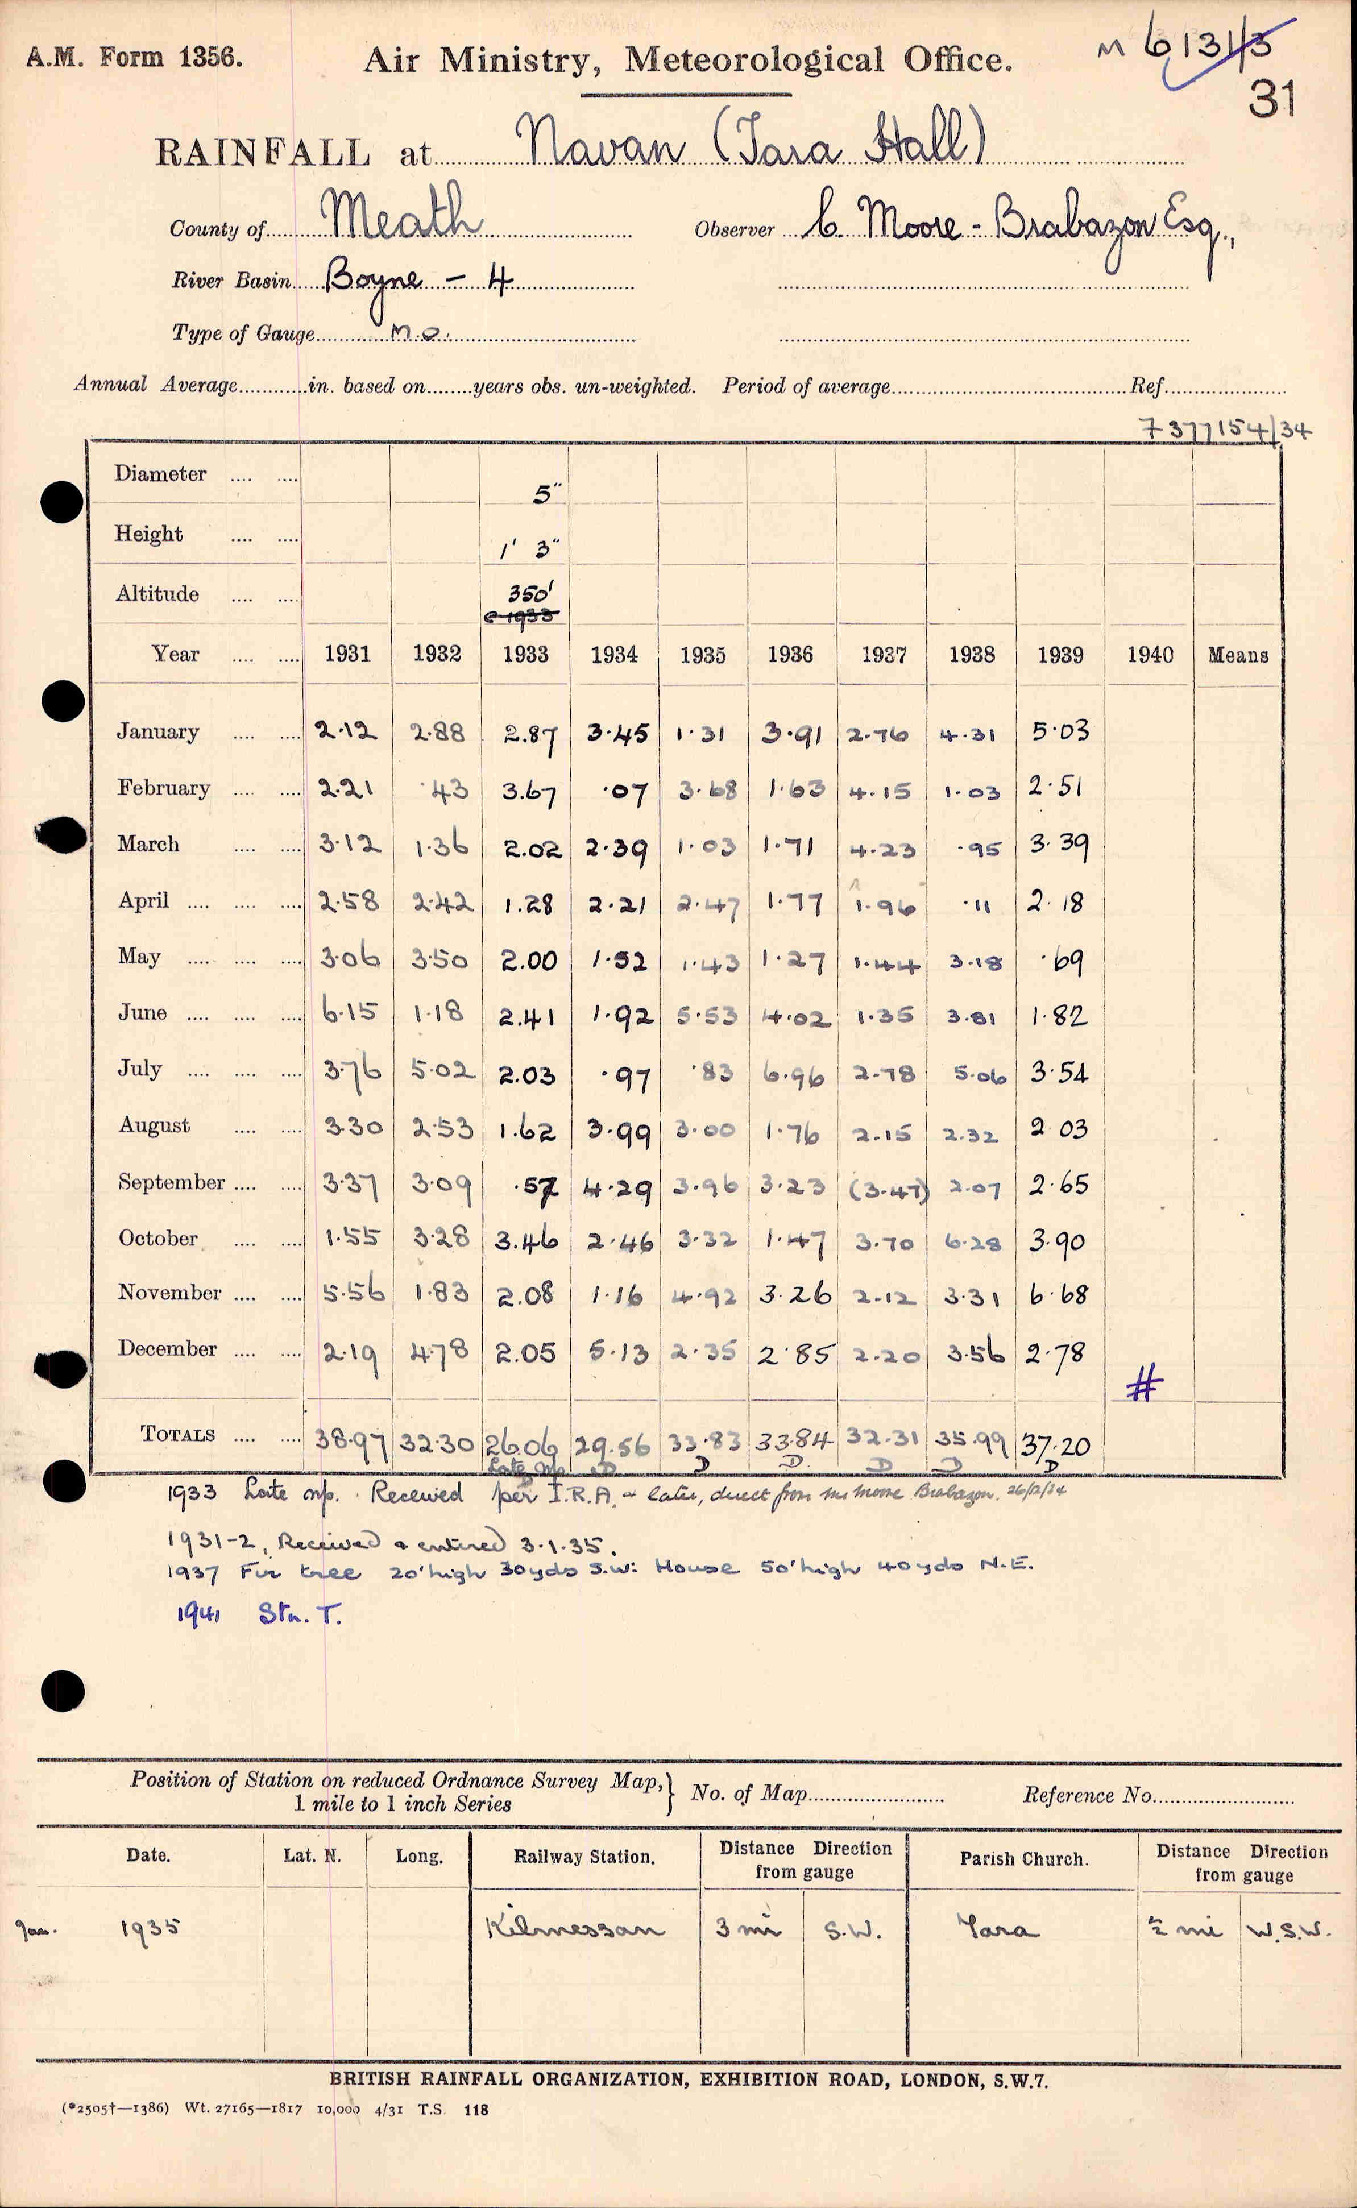 A.M. Form 1356.
Air Ministry, Meteorological Office.
M 6131/3
31
RAINFALL at Navan (Tara Hall)
County of Meath Observer C. Moore-Brabazon Esq.,
River Basin Boyne - 4
Type of Gauge M.O.
Annual Average in. based on years obs. un-weighted. Period of average Ref.
7377154/34
Diameter 5"
Height 1' 3"
Altitude 350'
c 1933
Year 1931 1932 1933 1934 1935 1936 1937 1938 1939 1940 Means
January 2.12 2.88 2.87 3.45 1.31 3.91 2.76 4.31 5.03
February 2.21 .43 3.67 .07 3.68 1.63 4.15 1.03 2.51
March 3.12 1.36 2.02 2.39 1.03 1.71 4.23 .95 3.39
April 2.58 2.42 1.28 2.21 2.47 1.77 1.96 .11 2.18
May 3.06 3.50 2.00 1.52 1.43 1.27 1.44 3.18 .69
June 6.15 1.18 2.41 1.92 5.53 4.02 1.35 3.81 1.82
July 3.76 5.02 2.03 .97 .83 6.96 2.78 5.06 3.54
August 3.30 2.53 1.62 3.99 3.00 1.76 2.15 2.32 2.03
September 3.37 3.09 .57 4.29 3.96 3.23 (3.47) 2.07 2.65
October 1.55 3.28 3.46 2.46 3.32 1.47 3.70 6.28 3.90
November 5.56 1.83 2.08 1.16 4.92 3.26 2.12 3.31 6.68
December 2.19 4.78 2.05 5.13 2.35 2.85 2.20 3.56 2.78
#
TOTALS 38.97 32.30 26.06 29.56 33.83 33.84 32.31 35.99 37.20
Late D D D D D D
1933 Late Received per I.R.A. - later, direct from Mr Moore Brabazon.
1931-2, Received & entered 3.1.35.
1937 Fir tree 20' high 30yds S.W: House 50' high 40yds N.E.
1941 Stn. T.
Position of Station on reduced Ordnance Survey Map,} No. of Map Reference No.
1 mile to 1 inch Series
Date. Lat. N. Long. Railway Station. Distance Direction from gauge Parish Church. Distance Direction from gauge
Jan. 1935 Kilmessan 3 mi S.W. Tara ½ mi W.S.W.
BRITISH RAINFALL ORGANIZATION, EXHIBITION ROAD, LONDON, S.W.7.
(*2505†—1386) Wt. 27165—1817 10,000 4/31 T.S. 118